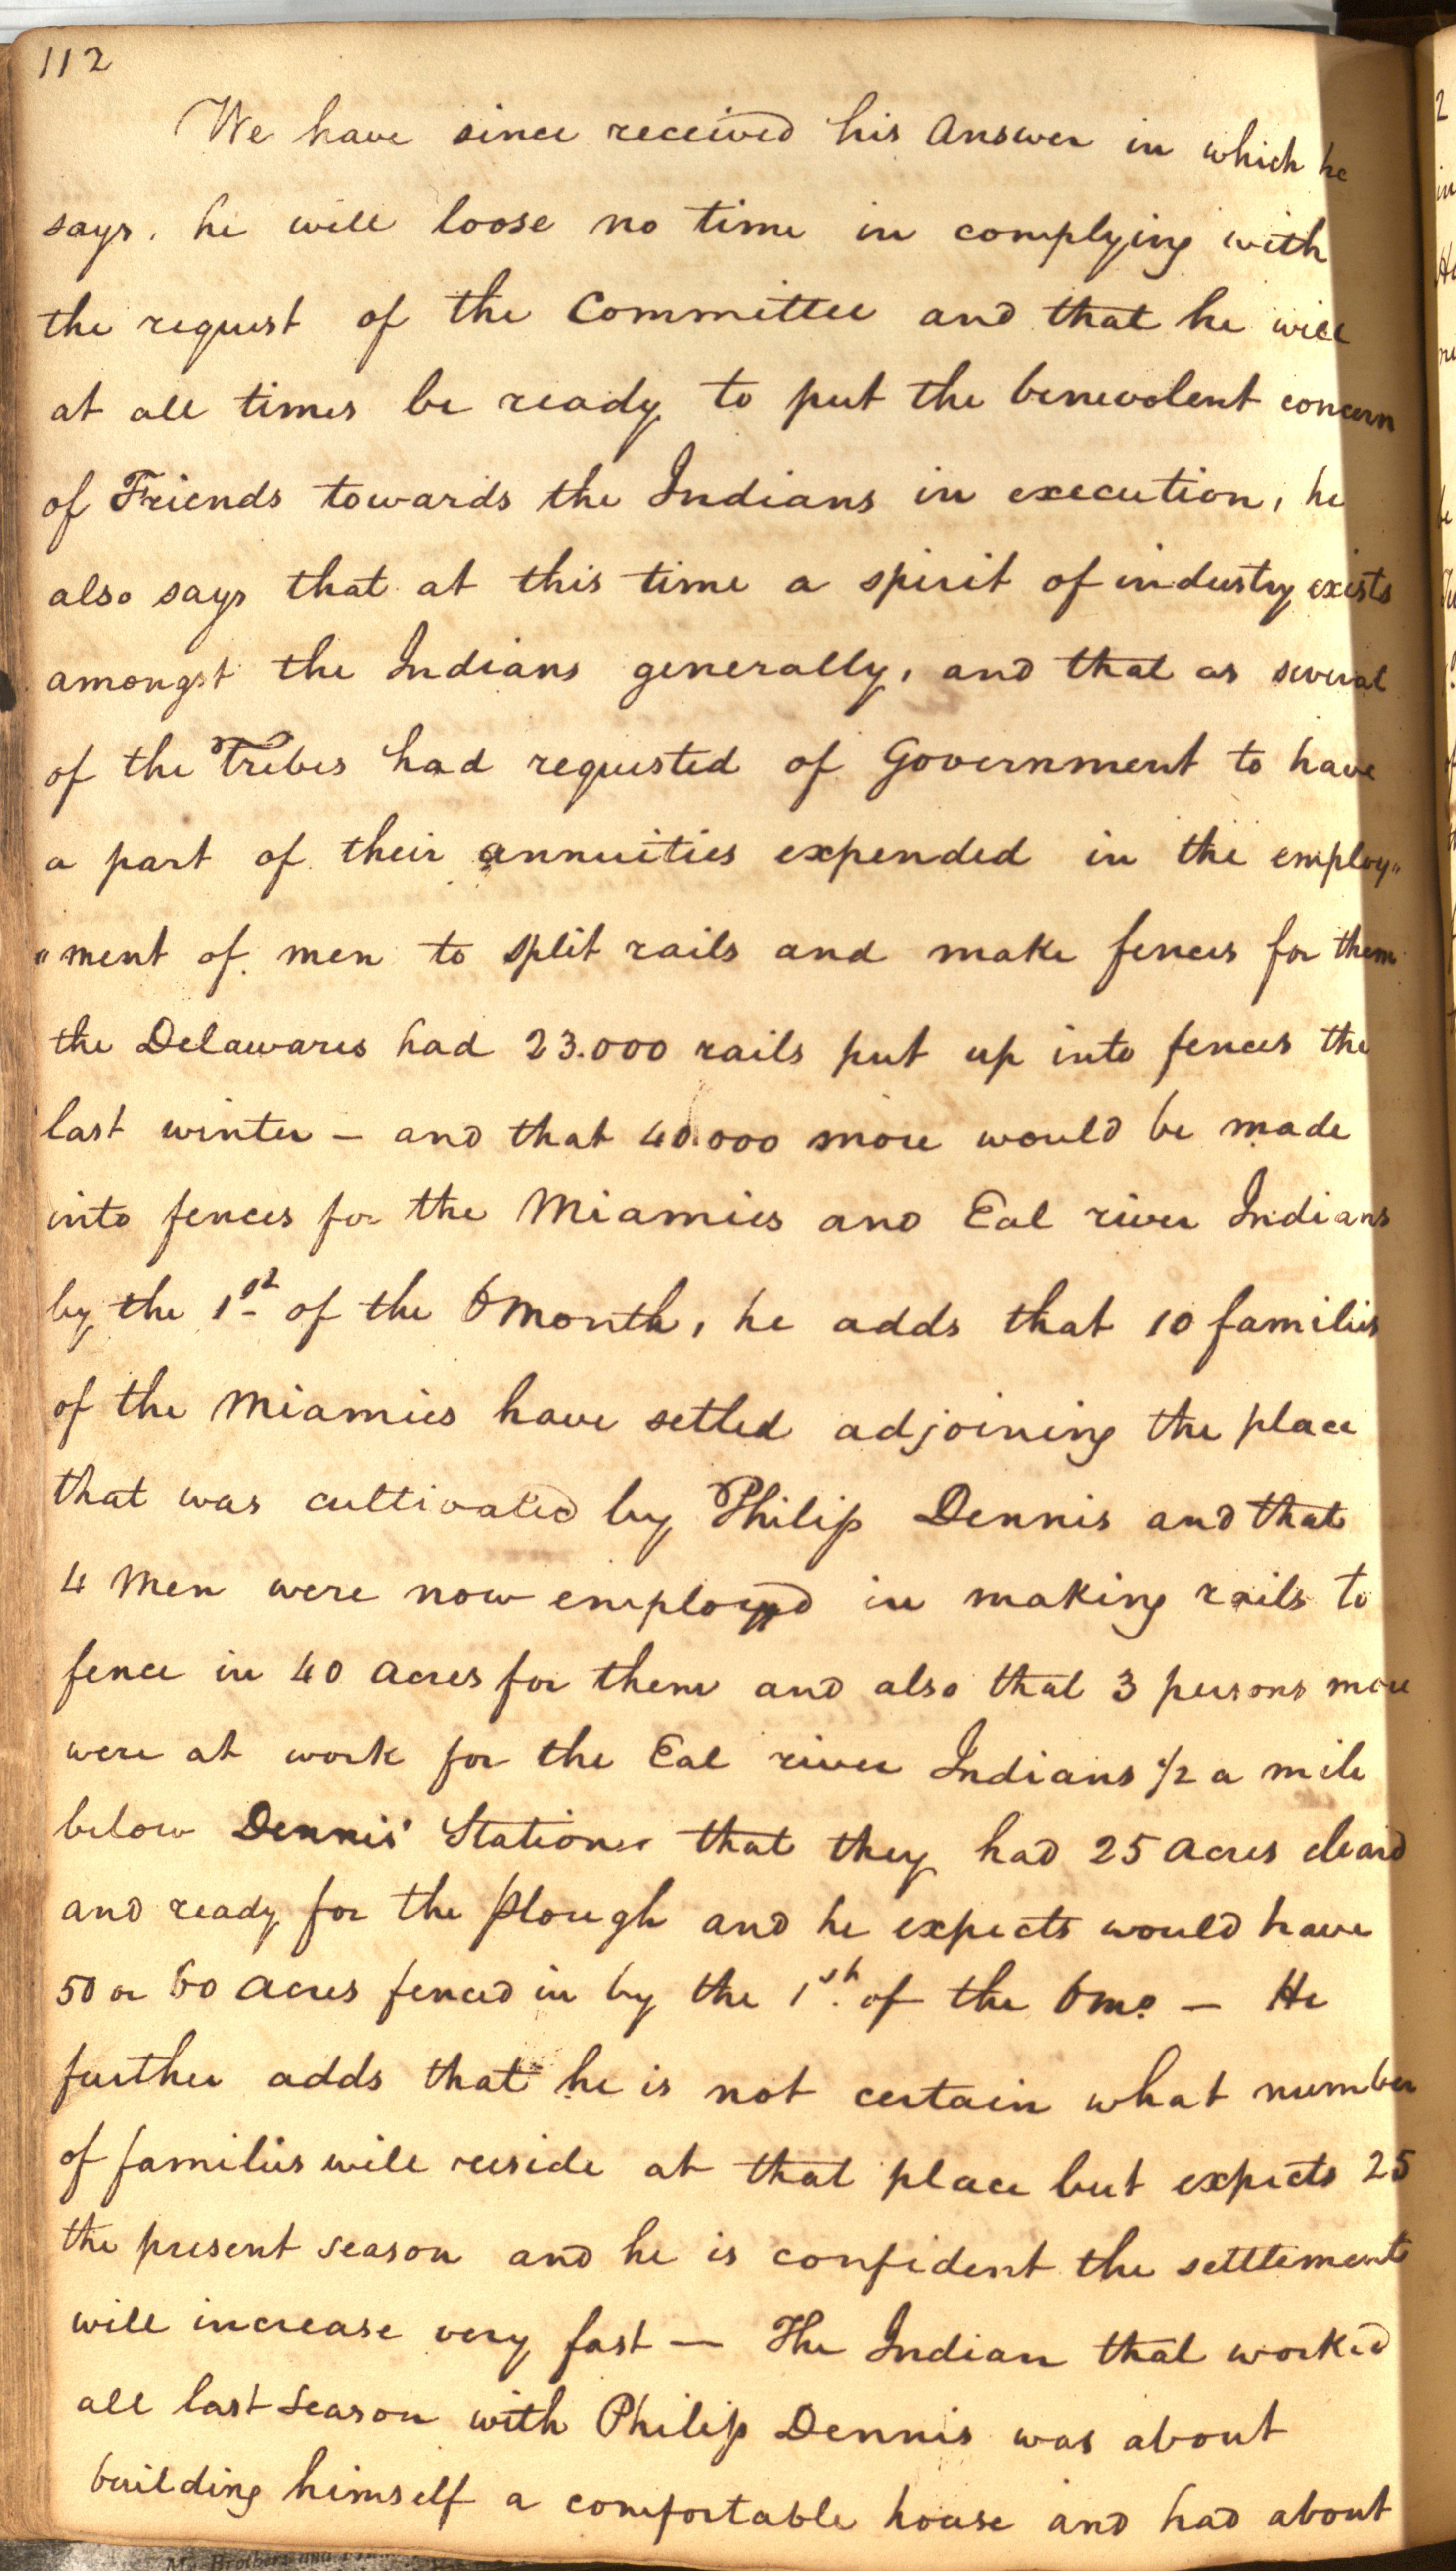 112
We have since received his Answer in which he
says, he will loose no time in complying with
the request of the Committee and that he will
at all times be ready to put the benevolent concern
of Friends towards the Indians in execution, he
also says that at this time a spirit of industry exists
amongst the Indians generally, and that as several
of the Tribes had requested of Government to have
a part of their annuities expended in the employ"
"ment of men to split rails and make fences for them
the Delawares had 23.000 rails put up into fences the
last winter – and that 40.000 more would be made
into fences for the Miamies and Eal river Indians
by the 1st of the 6 Month, he adds that 10 families
of the Miamies have setled adjoining the place
that was cultivated by Philip Dennis and that
4 Men were now employed in making rails to
fence in 40 Acres for them and also that 3 persons more
were at work for the Eal river Indians 1/2 a mile
below Dennis' Station that they had 25 Acres cleard
and ready for the Plough and he expects would have
50 or 60 Acres fenced in by the 1st of the 6mo – He
further adds that he is not certain what number
of families will reside at that place but expects 25
the present season and he is confident the settlements
will increase very fast – The Indian that worked
all last Season with Philip Dennis was about
building himself a comfortable house and had about